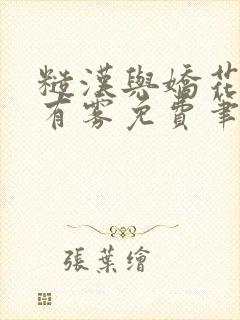 糙漢與嬌花
有霧免費筆
張葉繪